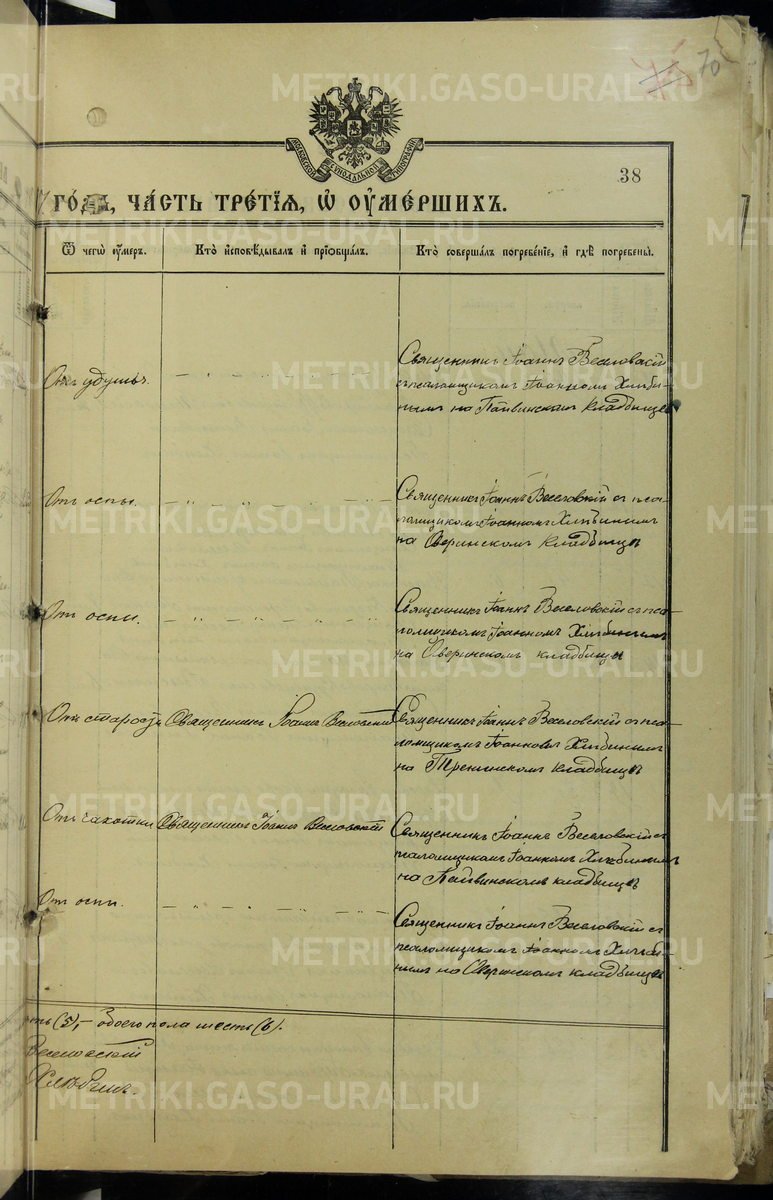 70
МОСКОВСКОЙ СѴНОДАЛЬНОЙ ТИПОГРАФІИ
38
7 го́дъ, ча́сть тре́тїѧ, ѡ҆ ᲂу҆ме́ршихъ.
Ѿ чегѡ̀ ᲂу҆́меръ.
Кто̀ и҆сповѣ́дывалъ и҆ прїѡбща́лъ.
Кто̀ соверша́лъ погребе́нїе, и҆ гдѣ̀ погребены̀.
Отъ удушья.
Священникъ Іоаннъ Веселовскій
съ псаломщикомъ Іоанномъ Хлѣби-
нымъ на Пайвинскомъ кладбищѣ
Отъ оспы.
Священникъ Іоаннъ Веселовскій съ пса-
ломщикомъ Іоанномъ Хлѣбинымъ
на Аверинскомъ кладбищѣ
Отъ оспы.
Священникъ Іоаннъ Веселовскій съ пса-
ломщикомъ Іоанномъ Хлѣбинымъ
на Аверинскомъ кладбищѣ
Отъ старости
Священникъ Іоаннъ Веселовскій
Священникъ Іоаннъ Веселовскій съ пса-
ломщикомъ Іоанномъ Хлѣбинымъ
на кладбищѣ
Отъ чахотки
Священникъ Іоаннъ Веселовскій
Священникъ Іоаннъ Веселовскій съ
псаломщикомъ Іоанномъ Хлѣбинымъ
на Пайвинскомъ кладбищѣ
Отъ оспы.
Священникъ Іоаннъ Веселовскій съ
псаломщикомъ Іоанномъ Хлѣби-
нымъ на Аверинскомъ кладбищѣ
ть (5), – обоего пола шесть (6).
Веселовскій
Хлѣбинъ.
METRIKI.GASO-URAL.RU